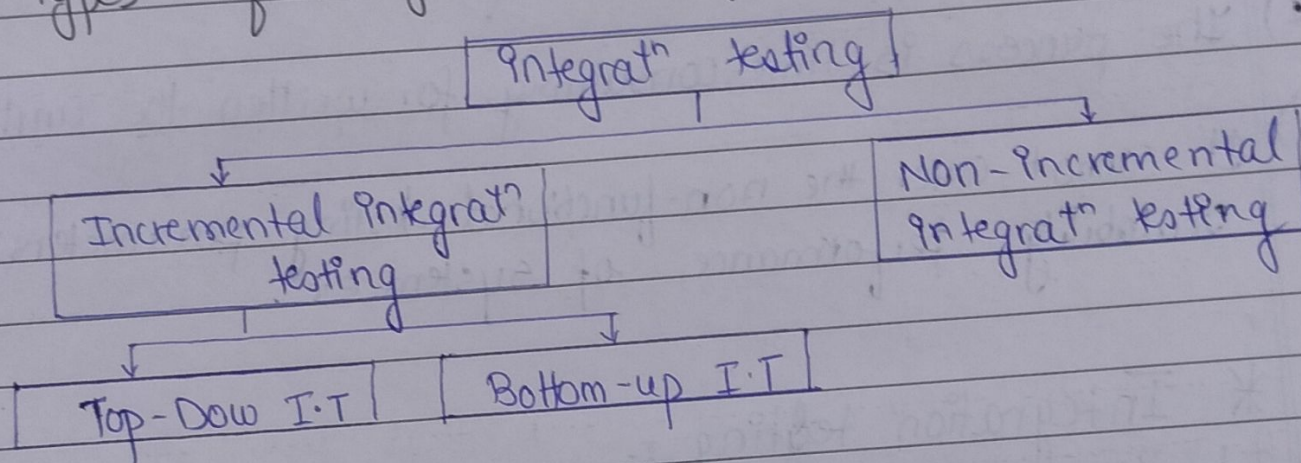 integratⁿ testing
Non-incremental
integratⁿ testing
Incremental integratⁿ
testing
Top-Dow I.T
Bottom-up I.T